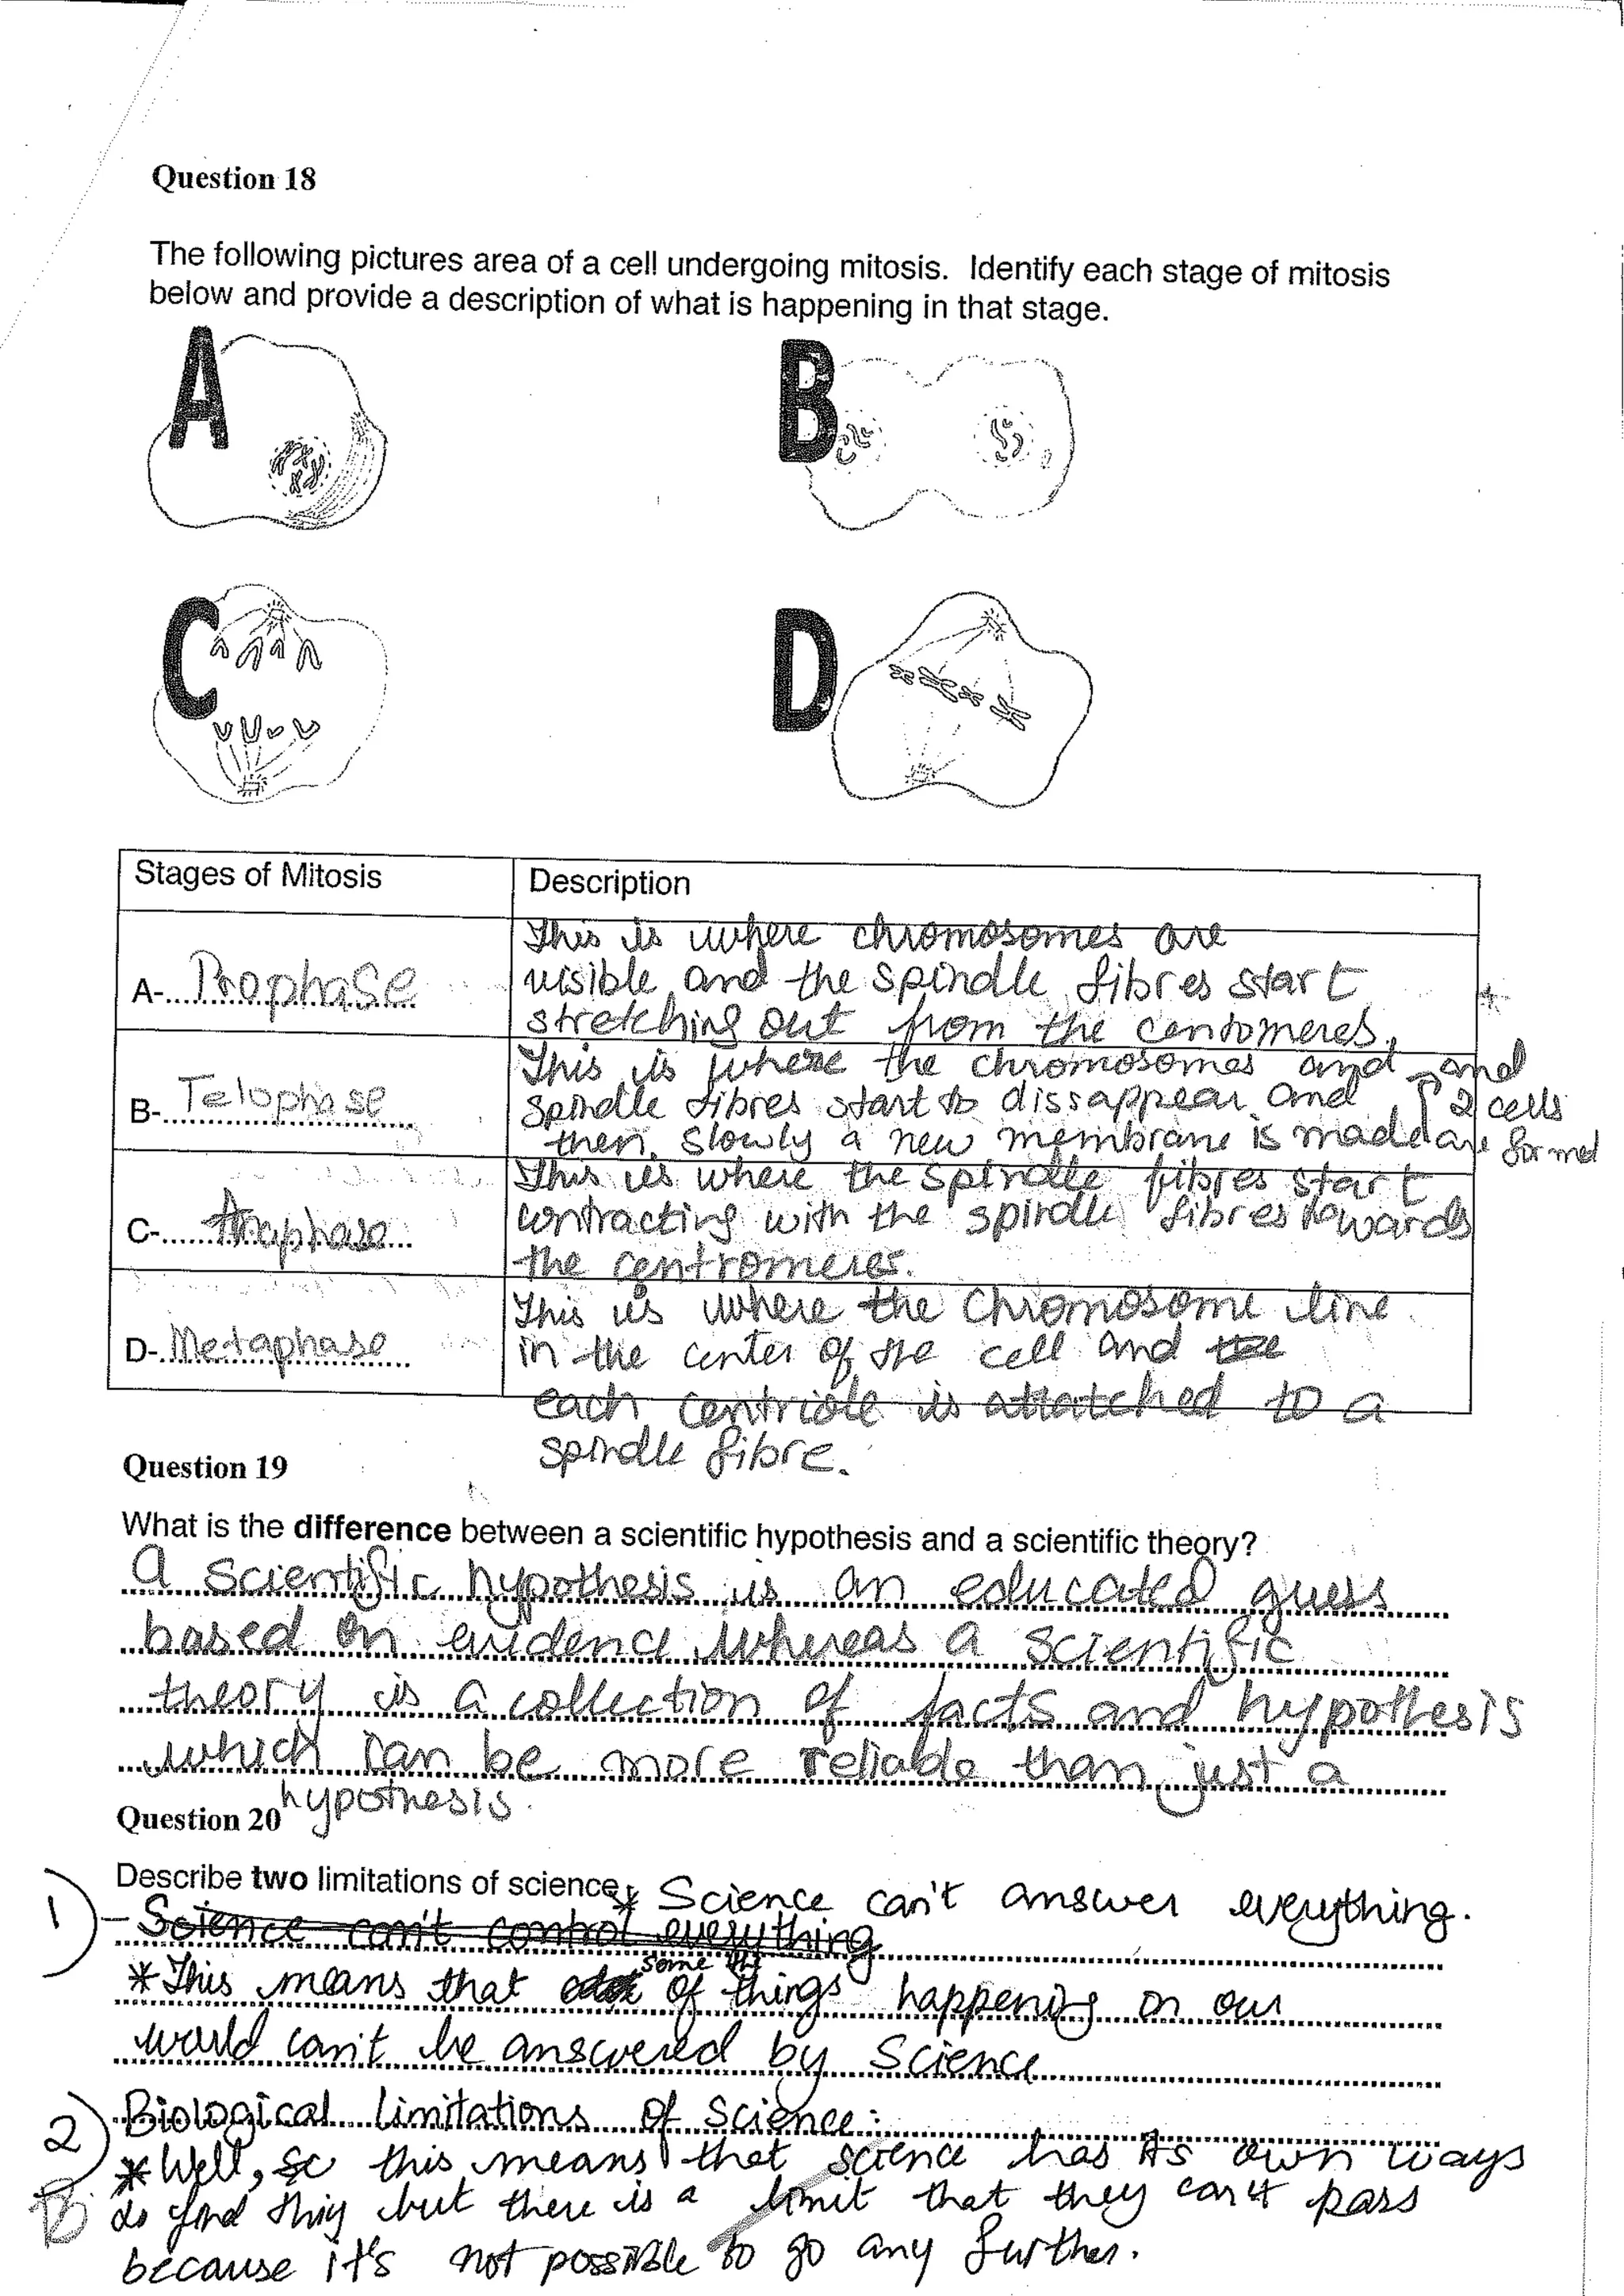 Question 18
The following pictures area of a cell undergoing mitosis. Identify each stage of mitosis
below and provide a description of what is happening in that stage.
A
B
C
D
Stages of Mitosis
Description
A-Prophase
This is where chromosomes are
visible and the spindle fibres start
stretching out from the centomeres.
B-Telophase
This is where the chromosomes and
spindle fibres start to dissappear and
then slowly a new membrane is made
and
2 cells
are formed
C-Anaphase
This is where the spindle fibres start
contracting with the spindle fibres towards
the centromeres.
D-Metaphase
This is where the chromosome line
in the center of the cell and the
each centriole is attatched to a
spindle fibre.
Question 19
What is the difference between a scientific hypothesis and a scientific theory?
a scientific hypothesis is an educated guess
based on evidence whereas a scientific
theory is a collection of facts and hypothesis
which can be more reliable than just a
hypothesis.
Question 20
Describe two limitations of science.
* Science can't answer everything.
1) - Science can't control everything
* This means that some of things happening on our
world can't be answered by science
2) Biological limitations of science:
* Well, sc this means that science has its own ways
do find thig but there is a limit that they can't pass
because it's not possible to go any further.